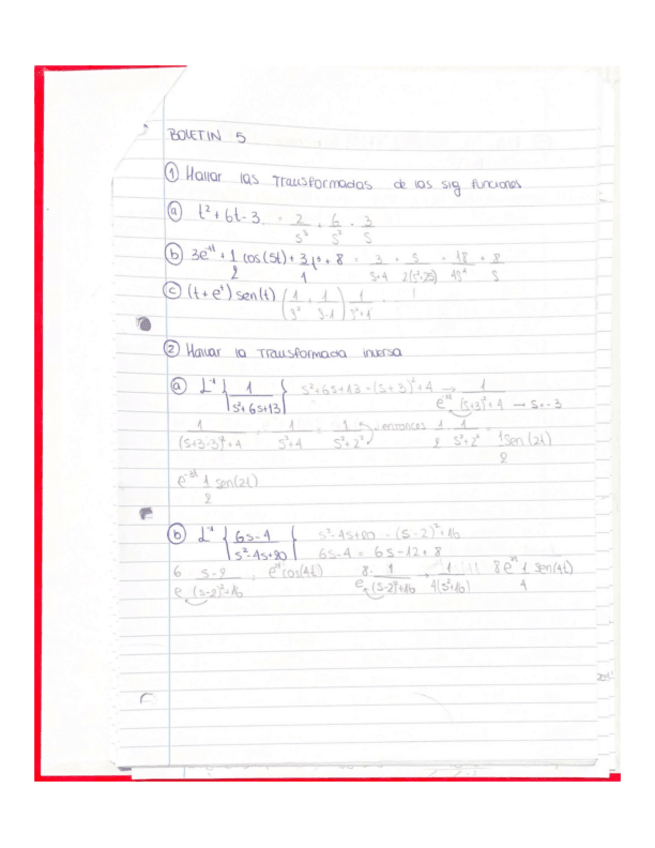 BOLETIN 5
① Hallar las Transformadas de las sig funciones
ⓐ t² + 6t - 3 = 2/s³ + 6/s² - 3/s
ⓑ 3e⁻⁴ᵗ + 1/2 cos(5t) + 3/4 t³ + 8 = 3/(s+4) + s/(2(s²+25)) + 18/4s⁴ + 8/s
ⓒ (t + eᵗ) sen(t) (1/s² + 1/(s-1)) 1/(s²+1)
② Hallar la Transformada inversa
ⓐ L⁻¹ { 1/(s²+6s+13) } s²+6s+13 = (s+3)²+4 → 1/((s+3)²+4) → s=-3
1/((s+3-3)²+4) = 1/(s²+4) = 1/(s²+2²) entonces 1/2 · 1/(s²+2²) = 1/2 sen(2t)
e⁻³ᵗ 1/2 sen(2t)
ⓑ L⁻¹ { (6s-4)/(s²-4s+20) } s²-4s+20 = (s-2)²+16
6s-4 = 6s-12+8
6 (s-2)/((s-2)²+16) = cos(4t) 8 · 1/((s-2)²+16) 1/(4(s²+16)) 8e²ᵗ 1/4 sen(4t)